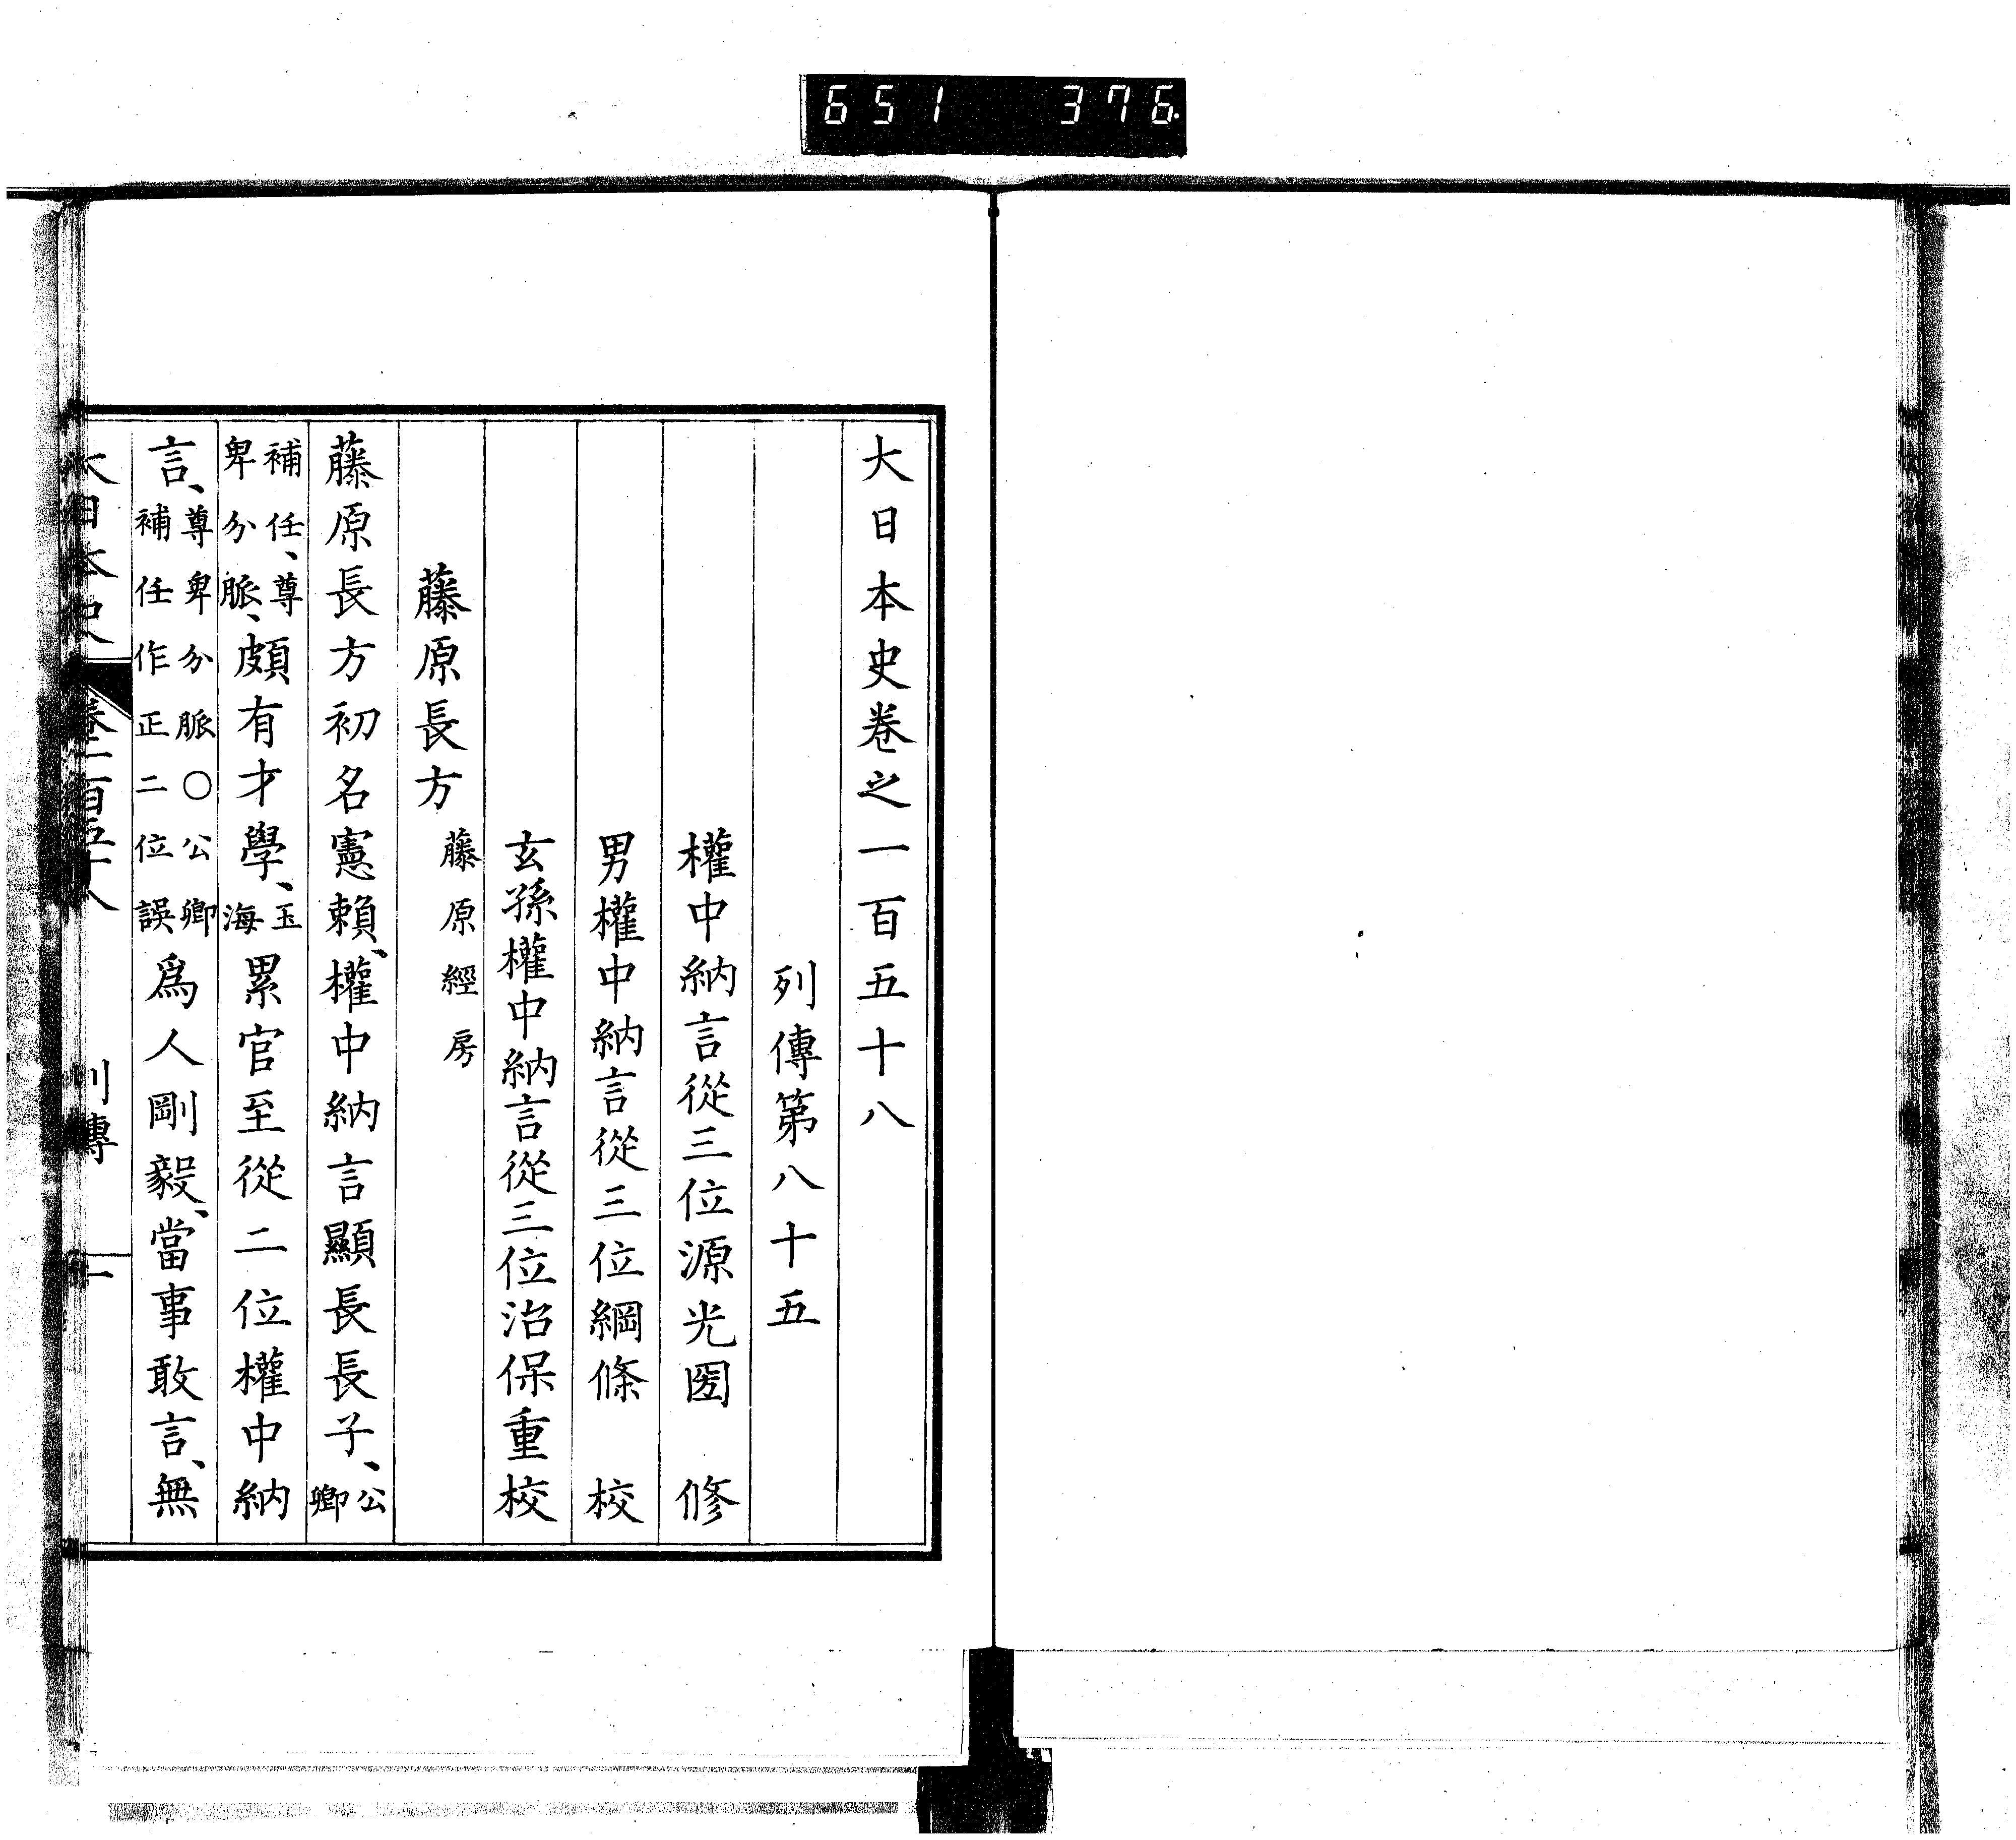 651 376
大日本史卷之一百五十八
列傳第八十五
權中納言從三位源光圀 修
男權中納言從三位綱條 校
玄孫權中納言從三位治保重校
藤原長方 藤原經房
藤原長方初名憲賴、權中納言顯長長子、公卿
補任、尊卑分脈、頗有才學、玉海累官至從二位權中納
言、尊卑分脈〇公卿補任作正二位誤爲人剛毅、當事敢言、無
大日本史 卷一百五十八 列傳 一